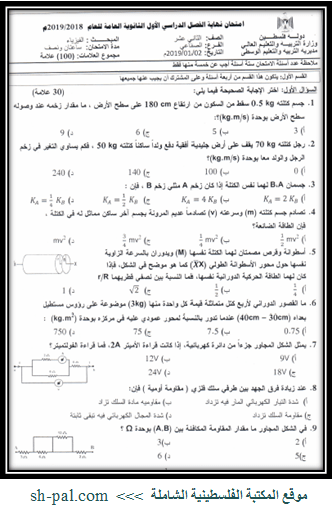 امتحان نهاية الفصل الدراسي الأول الثانوية العامة للعام 2019/2018م
دولة فلسطين
وزارة التربية والتعليم العالي
مديرية التربية والتعليم الوسطى
الصف: الثاني عشر
الفرع: الصناعي
التاريخ: 2019/01/02
المبحث: الفيزياء
مدة الامتحان: ساعتان ونصف
مجموع العلامات: (100) علامة
ملاحظة عدد أسئلة الامتحان ستة أسئلة أجب عن خمسة منها فقط
القسم الأول: يتكون هذا القسم من أربعة أسئلة وعلى المشترك أن يجيب عنها جميعها
السؤال الأول: اختر الإجابة الصحيحة فيما يلي: (30 علامة)
1. جسم كتلته 0.5 kg سقط من السكون من ارتفاع 180 cm على سطح الأرض، ما مقدار زخمه عند وصوله
سطح الأرض بوحدة (kg.m/s)؟:
أ) 3 ب) 5 ج) 6 د) 9
2. رجل كتلته 70 kg يقف على أرض جليدية أفقية دفع ولداً ساكناً كتلته 50 kg ، فكم يساوي التغير في زخم
الرجل والولد معا بوحدة (kg.m/s)؟
أ) 0 ب) 100 ج) 140 د) 240
3. جسمان A،B لهما نفس الكتلة إذا كان زخم A مثلي زخم B ، فإن:
أ) K_A = 2 K_B ب) K_A = 4 K_B ج) K_A = ½ K_B د) K_A = ¼ K_B
4. تصادم جسم كتلته (m) وسرعته (v) تصادما عديم المرونة بجسم آخر ساكن مماثل له في الكتلة .
فإن الطاقة الضائعة؟
أ) ¼ mv² ب) ½ mv² ج) ¾ mv² د) mv²
5. أسطوانة وقرص مصمتان لهما نفس الكتلة ويدوران بالسرعة الزاوية
نفسها حول محور الأسطوانة الطولي (XX) كما هو موضح في الشكل، فإذا
كان لهما الطاقة الحركية الدورانية نفسها، فما النسبة بين نصفي قطريهما r/R
1 (د √2 (ج
6. ما القصور الدوراني لأربع كتل متماثلة قيمة كل واحدة منها (3kg) موضوعة على رؤوس مستطيل
بعداه (40cm – 30cm) عندما تدور بالنسبة لمحور عمودي عليه في مركزه بوحدة (kg.m²) :
أ) 0.75 ب) 7.5 ج) 75 د) 750
7. يمثل الشكل المجاور جزءاً من دائرة كهربائية، إذا كانت قراءة الأميتر 2A، فما قراءة الفولتميتر؟
أ) 9V ب) 12V
ج) 18V د) 24V
8. عند زيادة فرق الجهد بين طرفي سلك فلزي (مقاومة أومية) فإن:
أ) شدة التيار الكهربائي المار فيه تزداد ب) مقاومية مادة السلك تزداد
ج) مقاومة السلك تزداد د) شدة المجال الكهربائي فيه تبقى ثابتة
9. في الشكل المجاور ما مقدار المقاومة المكافئة بين (A,B) بوحدة Ω ؟
أ) 2 ب) 3
ج) 5 د) 6
موقع المكتبة الفلسطينية الشاملة <<< sh-pal.com